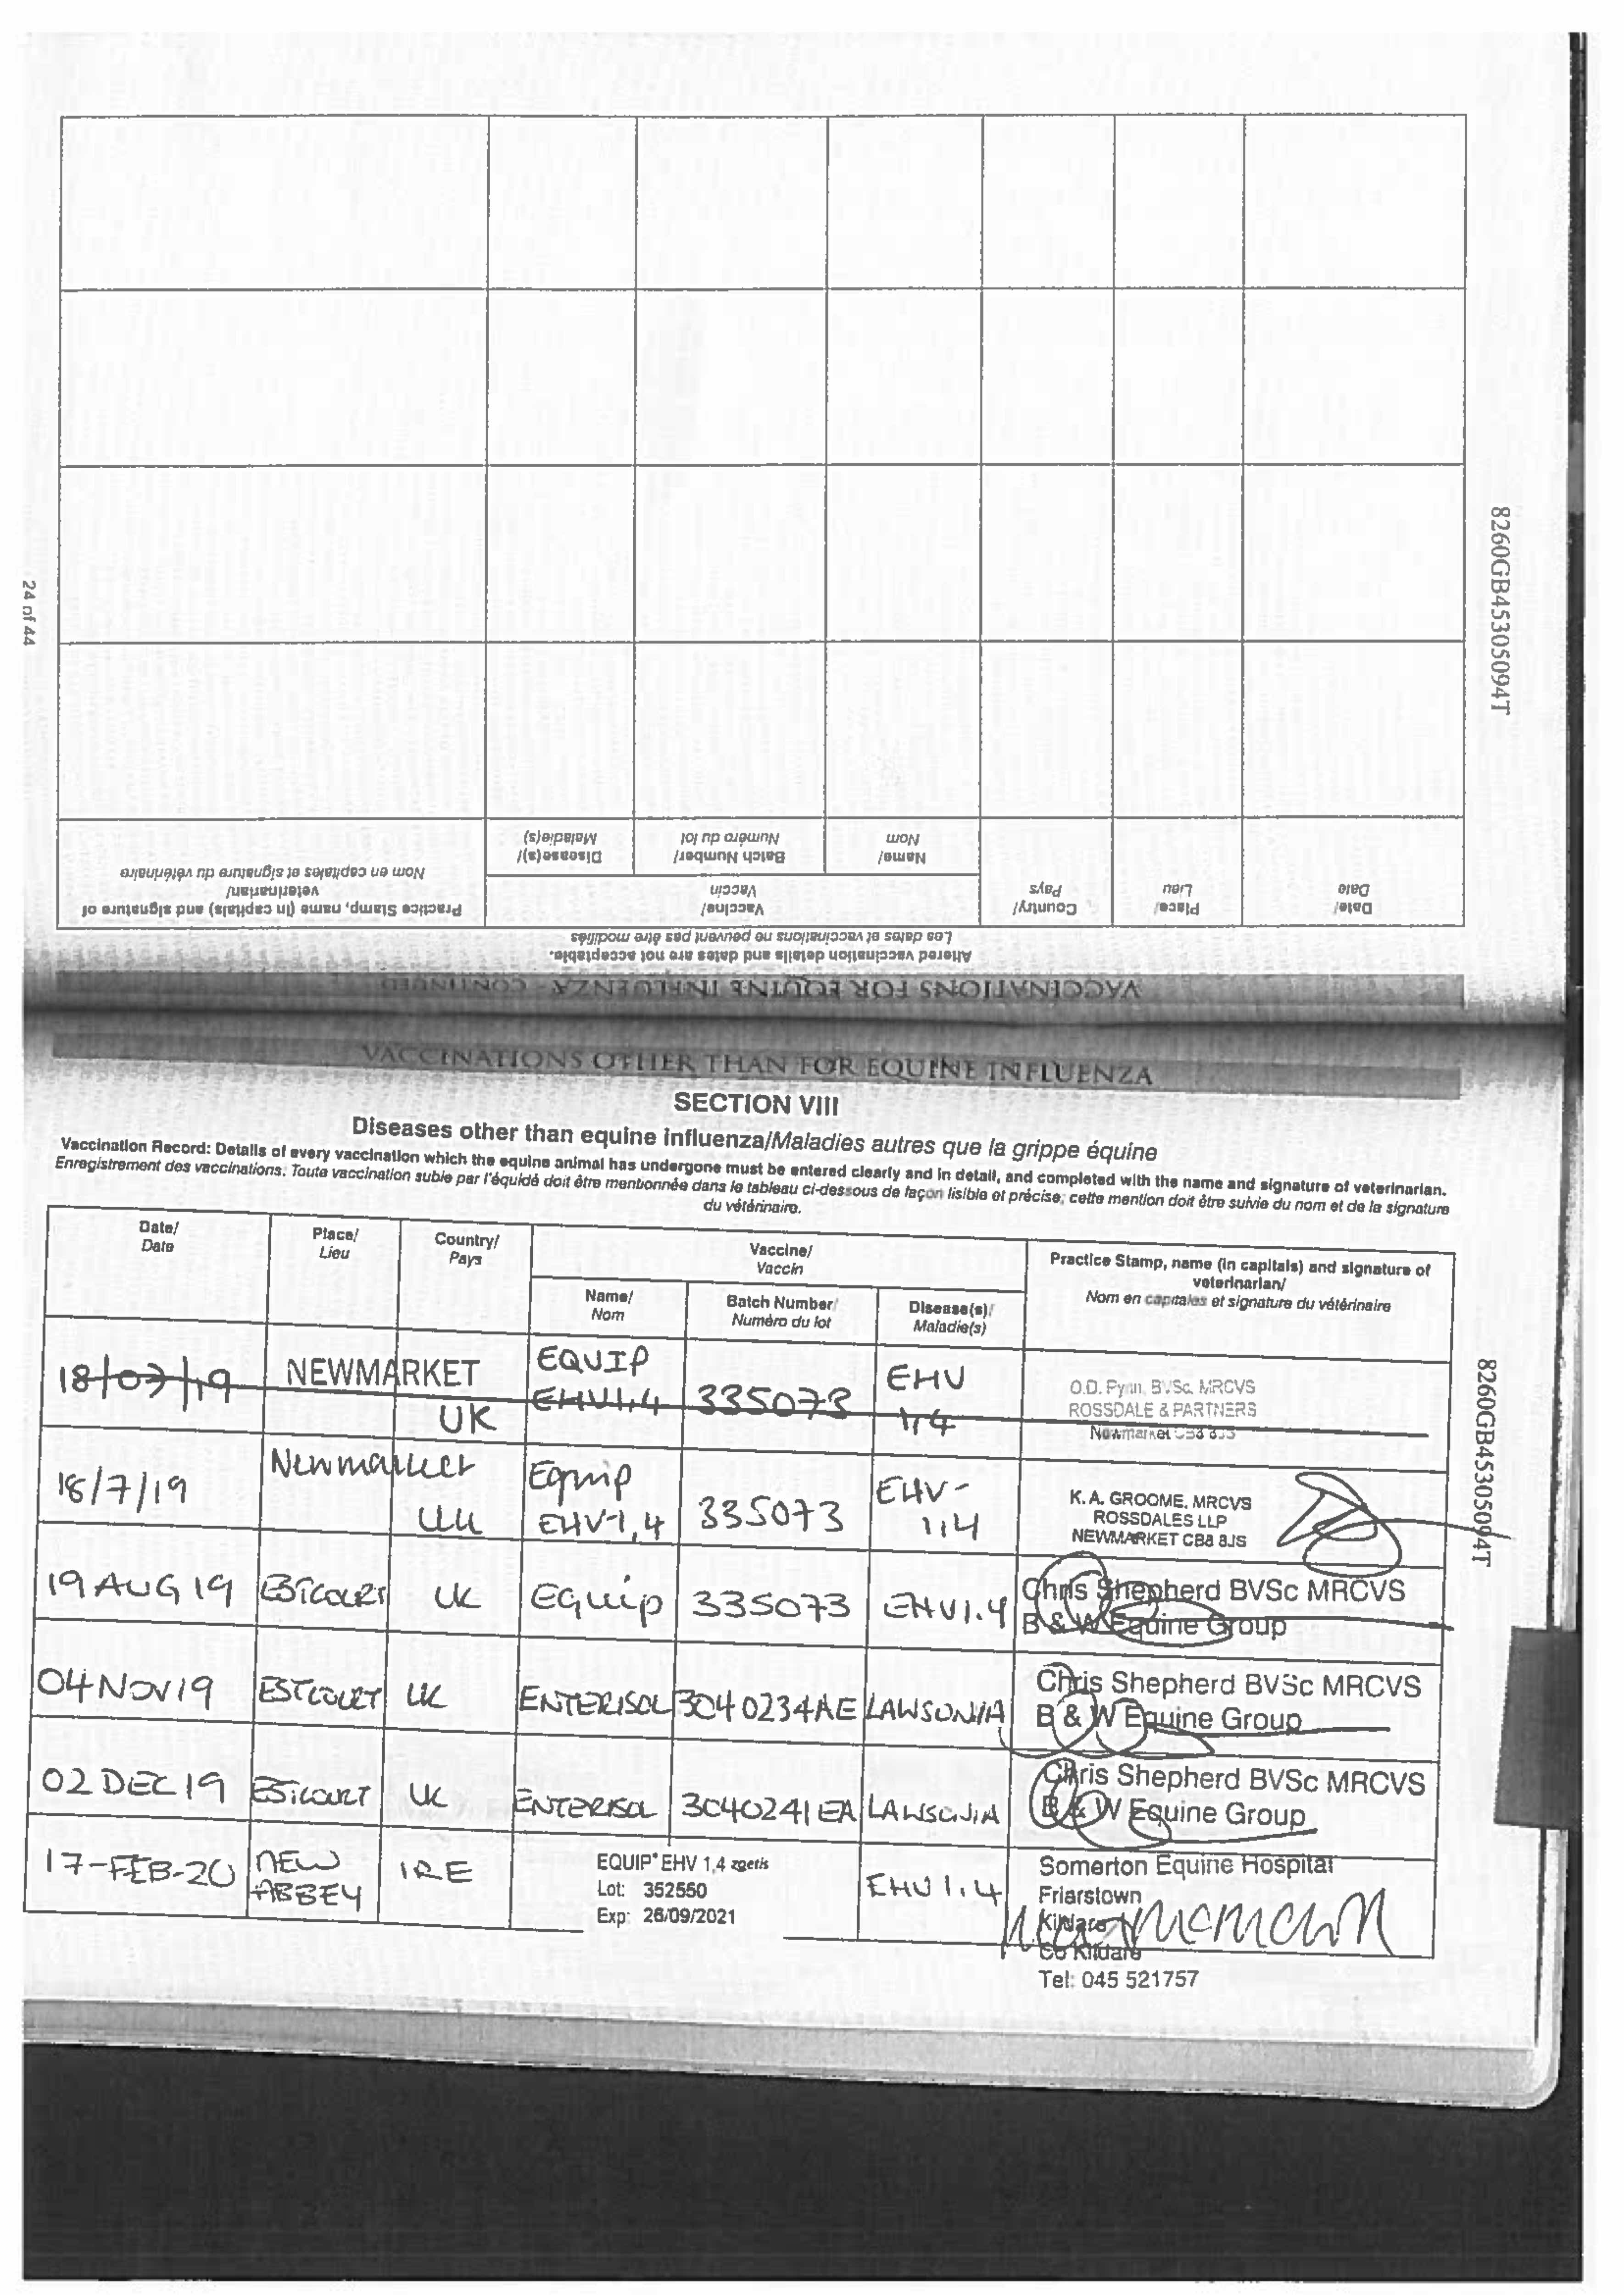 24 of 44
8260GB45305094T
VACCINATIONS FOR EQUINE INFLUENZA - CONTINUED
Altered vaccination details and dates are not acceptable.
Les dates et vaccinations ne peuvent pas être modifiés
Date/
Date
Place/
Lieu
Country/
Pays
Vaccine/
Vaccin
Name/
Nom
Batch Number/
Numéro du lot
Disease(s)/
Maladie(s)
Practice Stamp, name (in capitals) and signature of
veterinarian/
Nom en capitales et signature du vétérinaire
VACCINATIONS OTHER THAN FOR EQUINE INFLUENZA
SECTION VIII
Diseases other than equine influenza/Maladies autres que la grippe équine
Vaccination Record: Details of every vaccination which the equine animal has undergone must be entered clearly and in detail, and completed with the name and signature of veterinarian.
Enregistrement des vaccinations: Toute vaccination subie par l'équidé doit être mentionnée dans le tableau ci-dessous de façon lisible et précise; cette mention doit être suivie du nom et de la signature
du vétérinaire.
Date/
Date
Place/
Lieu
Country/
Pays
Vaccine/
Vaccin
Name/
Nom
Batch Number/
Numéro du lot
Disease(s)/
Maladie(s)
Practice Stamp, name (in capitals) and signature of
veterinarian/
Nom en capitales et signature du vétérinaire
18/07/19 NEWMARKET UK EQUIP EHV1,4 335073 EHV 1,4
O.D. Pynn, BVSc, MRCVS
ROSSDALE & PARTNERS
Newmarket CB8 8JS
18/7/19 Newmarket UK Equip EHV-1,4 335073 EHV-1,4
K. A. GROOME, MRCVS
ROSSDALES LLP
NEWMARKET CB8 8JS
19 AUG 19 ESTCOURT UK Equip 335073 EHV1.4
Chris Shepherd BVSc MRCVS
B & W Equine Group
04 NOV 19 ESTCOURT UK ENTERISOL 3040234AE LAWSONIA
Chris Shepherd BVSc MRCVS
B & W Equine Group
02 DEC 19 ESTCOURT UK ENTERISOL 3040241EA LAWSONIA
Chris Shepherd BVSc MRCVS
B & W Equine Group
17-FEB-20 NEW ABBEY IRE
EQUIP* EHV 1,4 zoetis
Lot: 352550
Exp: 26/09/2021
EHV 1.4
Somerton Equine Hospital
Friarstown
Kildare
Co Kildare
Tel: 045 521757
8260GB45305094T